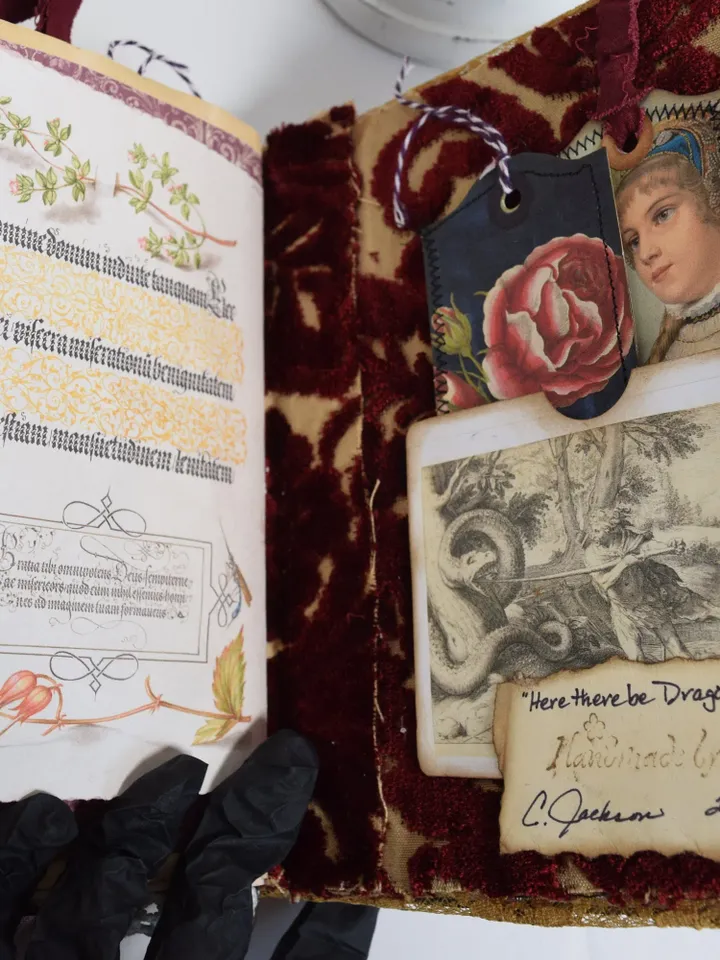 domini induite tanquam Elec
viscera miserationū benignitatem
mansuetudinem lenitatem
Gratia tibi omnipotens Deus sempiterne
ac misericors quod cum nihil essemus homi
nes ad imaginem tuam formaveris
"Here there be Drago
Handmade by
C. Jackson